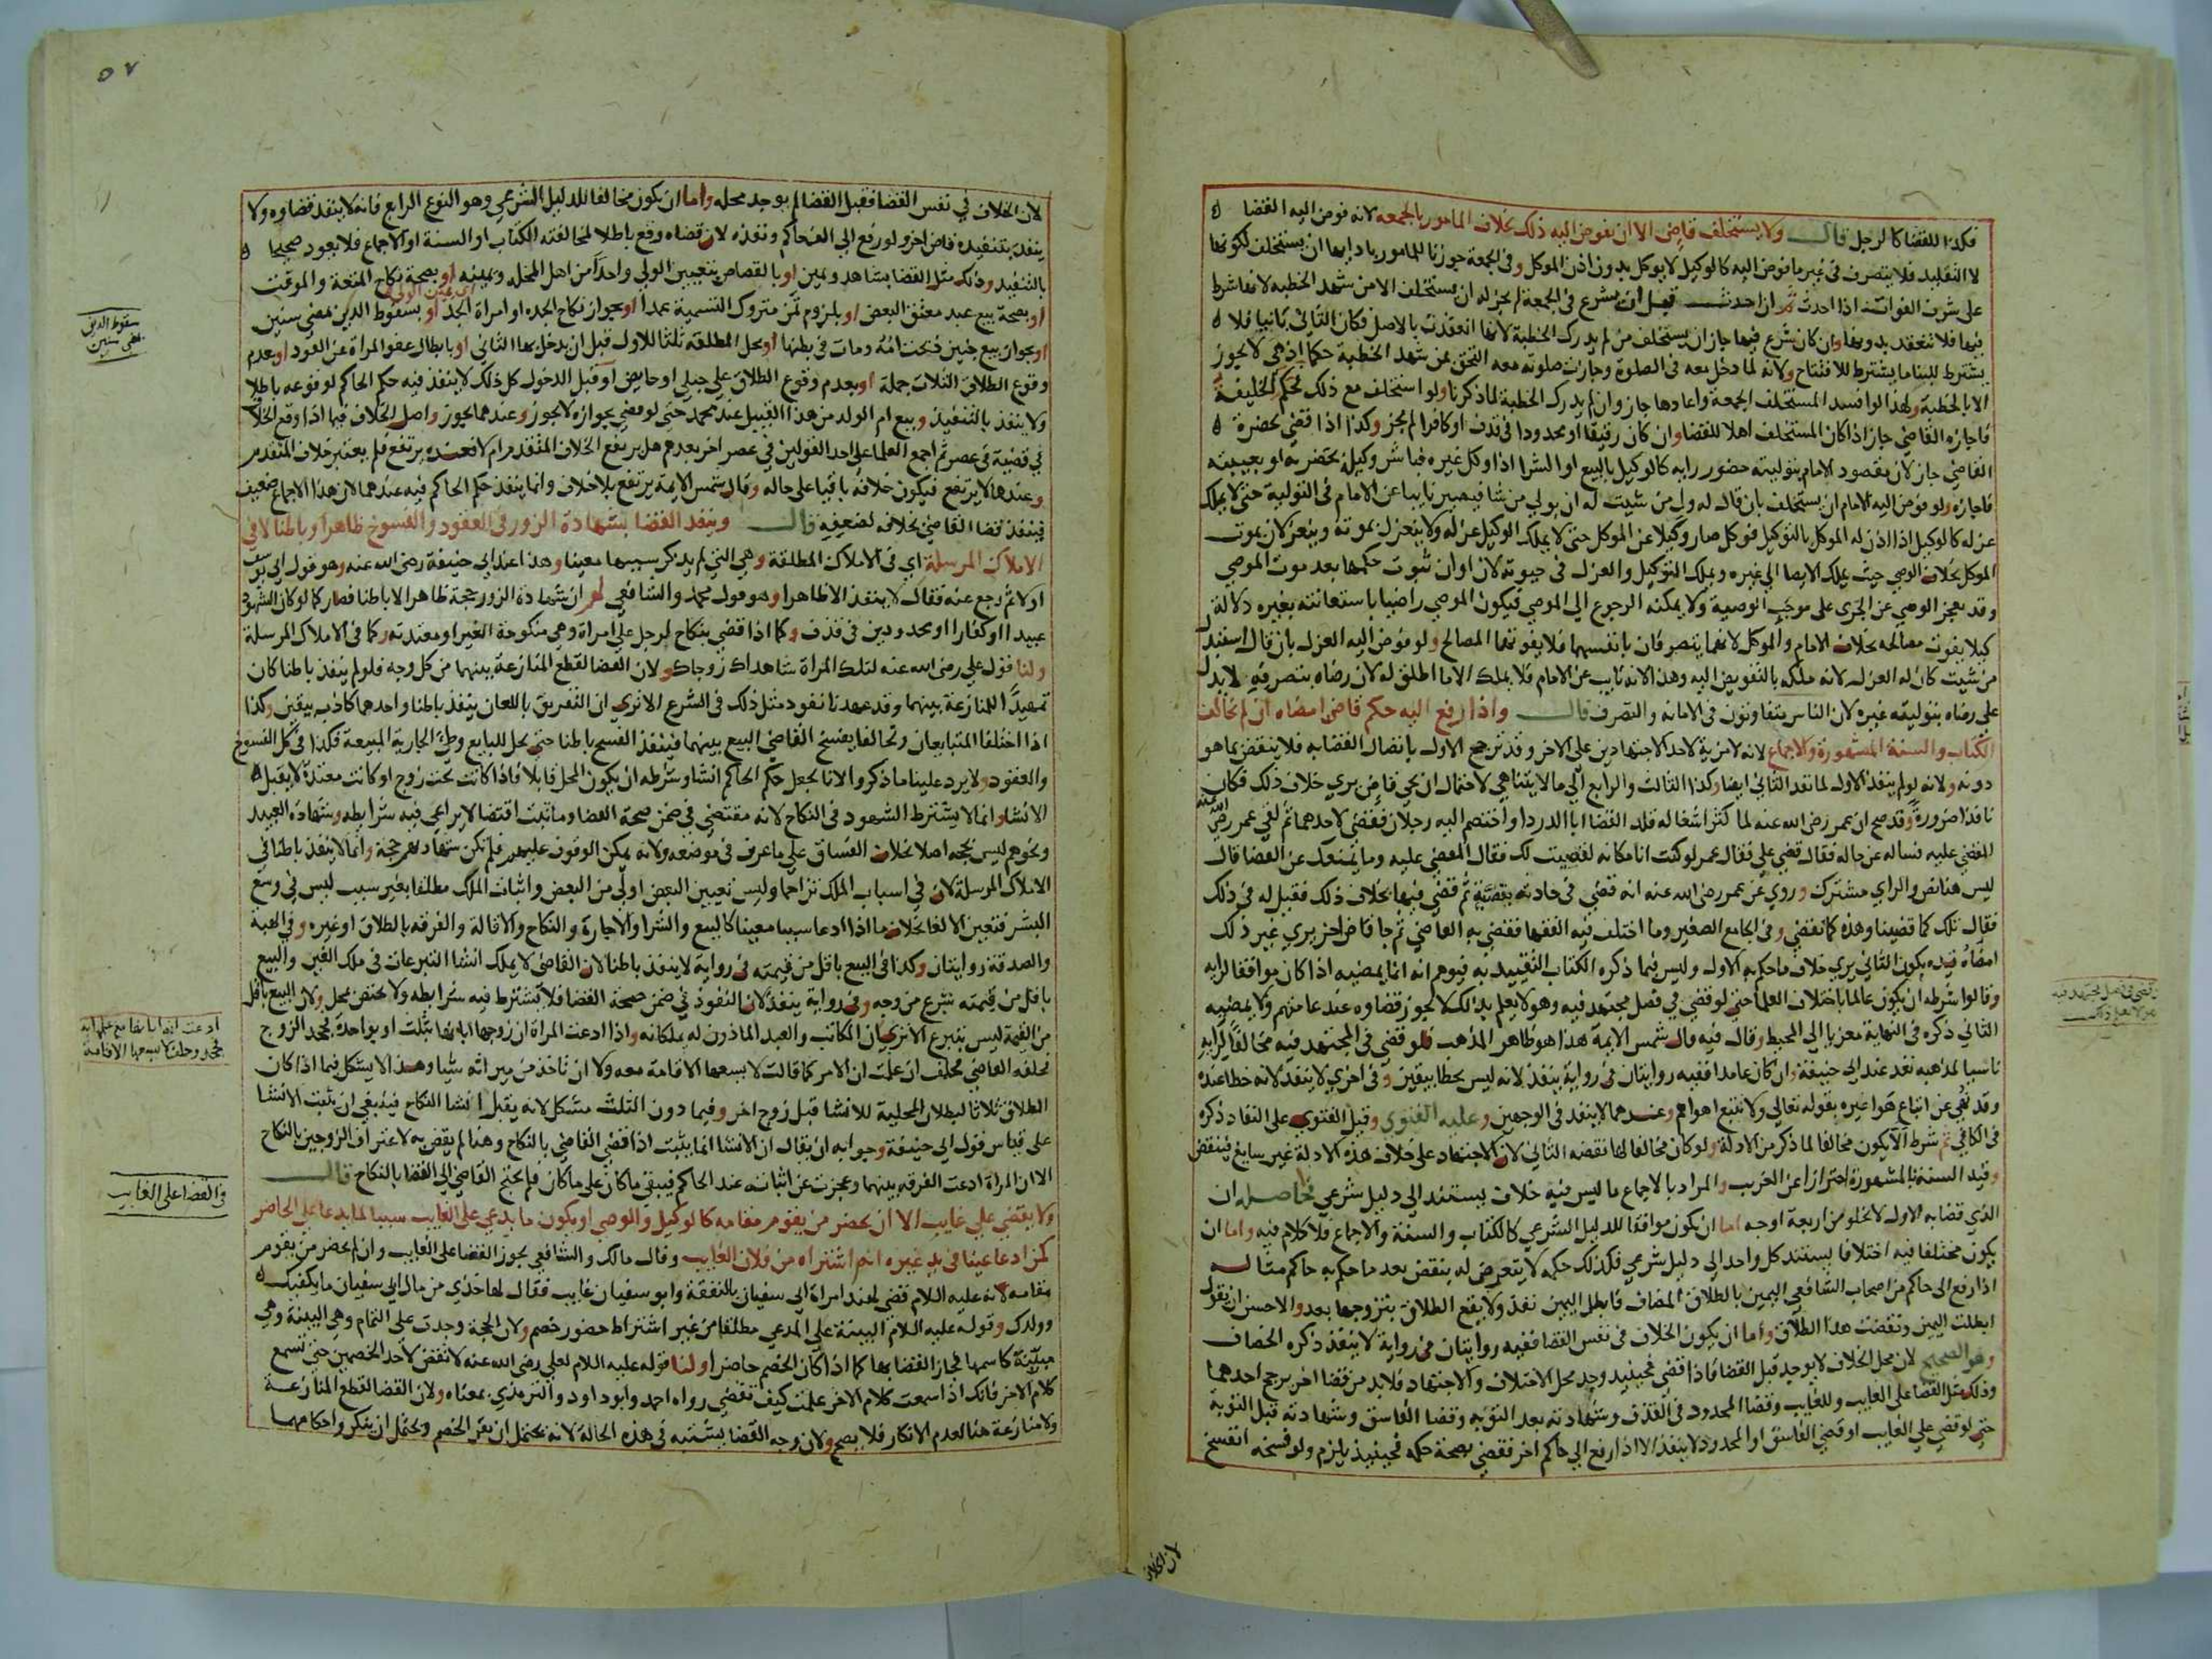 فكذا للقضا كالرجل قال ولا يستخلف قاض الا ان يفوض اليه ذلك بخلاف المامور بالجمعه لانه فوض اليه القضا
لا التقليد فلا يتصرف في غير ما فوض اليه كالوكيل لا يوكل بدون اذن الموكل وفي الجمعة جوزنا للمامور بادايها ان يستخلف لكونها
على شرف الفوات اذا احدث ثم ان احدث قبل ان يشرع في الجمعة لم يجز له ان يستخلف الا من شهد الخطبه لانها شرط
فيها فلا تنعقد بدونها وان كان شرع فيها جاز ان يستخلف من لم يدرك الخطبة لانها انعقدت بالاصل فكان الثاني بانيا فلا
يشترط للبنا ما يشترط للافتتاح ولانه لما دخل معه في الصلوة وجازت صلوته معه التحق بمن شهد الخطبة حكما اذ هي لا يجوز
الا بالخطبة ولهذا لو افسد المستخلف الجمعة واعادها جاز وان لم يدرك الخطبة لما ذكرنا ولو استخلف مع ذلك فحكم الخليفة
فاجازه القاضي جاز اذا كان المستخلف اهلا للقضا وان كان رقيقا او محدودا في قذف او كافرا لم يجز وكذا اذا قضي بحضرة
القاضي جاز لان مقصود الامام بتوليته حضور رايه كالوكيل بالبيع او الشرا اذا وكل غيره فباشر وكيله بحضرته او بغيبته
فاجازه ولو فوض اليه الامام ان يستخلف بان قال له ول من شيت له ان يولي من شا فيصير نايبا عن الامام في التولية حتى لا يملك
عزله كالوكيل اذا اذن له الموكل بالتوكيل فوكل صار وكيلا عن الموكل حتى لا يملك الوكيل عزله ولا ينعزل بموته وينعزلان بموت
الموكل بخلاف الوصي حيث يملك الايصا الي غيره ويملك التوكيل والعزل في حيوته لان اوان ثبوت حكمها بعد موت الموصي
وقد يعجز الوصي عن الجري على موجب الوصية ولا يمكنه الرجوع الي الموصي فيكون الموصي راضيا باستعانته بغيره دلالة
كيلا يفوت مصالحه بخلاف الامام والموكل لانهما يتصرفان بانفسهما فلا يفوتهما المصالح ولو فوض اليه العزل بان قال استبدل
من شيت كان له العزل لانه ملكه بالتفويض اليه وهذا لانه نايب عن الامام فلا يملك الا ما اطلق له لان رضاه بتصرفه لا يدل
على رضاه بتوليته غيره لان الناس يتفاوتون في الامانه والتصرف قال واذا رفع اليه حكم قاض امضاه ان لم يخالف
الكتاب والسنة المشهورة والاجماع لانه لا مزية لاحد الاجتهادين على الاخر وقد ترجح الاول باتصال القضا به فلا ينتقض بما هو
دونه ولانه لو لم ينفذ الاول لما نفذ الثاني ايضا وكذا الثالث والرابع الي ما لا يتناهي لاحتمال ان يجي قاض يري خلاف ذلك فكان
نافذا ضرورة وقد صح ان عمر رضي الله عنه لما كثر اشغاله قلد القضا ابا الدردا واختصم اليه رجلان فقضي لاحدهما ثم لقي عمر رضي الله عنه
المقضي عليه فساله عن حاله فقال قضي علي فقال عمر لو كنت انا مكانه لقضيت لك فقال المقضي عليه وما يمنعك عن القضا قال
ليس هنا نص والراي مشترك وروي عن عمر رضي الله عنه انه قضي في حادثه بقضية ثم قضي فيها بخلاف ذلك فقيل له في ذلك
فقال تلك كما قضينا وهذه كما نقضي وفي الجامع الصغير وما اختلف فيه الفقها فقضي به القاضي ثم جا قاض اخر يري غير ذلك
امضاه قيده بكون الثاني يري خلاف ما حكم به الاول وليس فيما ذكره الكتاب التقييد به فيوهم انه انما يمضيه اذا كان موافقا لرايه
وقالوا شرطه ان يكون عالما باختلاف العلما حتى لو قضي في فصل مجتهد فيه وهو لا يعلم بذلك لا يجوز قضاوه عند عامتهم ولا يمضيه
الثاني ذكره في النهاية معزيا الي المحيط وقال فيه قال شمس الايمة هذا هو ظاهر المذهب فلو قضي في المجتهد فيه مخالفا لرايه
ناسيا لمذهبه نفذ عند ابي حنيفة وان كان عامدا ففيه روايتان في رواية ينفذ لانه ليس بخطا بيقين وفي اخري لا ينفذ لانه خطا عنده
وقد نهي عن اتباع هوا غيره بقوله تعالي ولا تتبع اهواهم وعندهما لا ينفذ في الوجهين وعليه الفتوي وقيل الفتوي على النفاذ ذكره
في الكافي ثم شرط الا يكون مخالفا لما ذكر من الادلة ولو كان مخالفا لها نقضه الثاني لان الاجتهاد على خلاف هذه الادلة غير سايغ فينقض
وقيد السنة بالمشهورة احترازا عن الغريب والمراد بالاجماع ما ليس فيه خلاف يستند الي دليل شرعي فحاصله ان
الذي قضا به الاول لا يخلو من اربعة اوجه اما ان يكون موافقا للدليل الشرعي كالكتاب والسنة والاجماع فلا كلام فيه واما ان
يكون مختلفا فيه اختلافا يستند كل واحد الي دليل شرعي فكذلك حكمه لا يتعرض له ينقض بعد ما حكم به حاكم مثاله
اذا رفع الي حاكم من اصحاب الشافعي اليمين بالطلاق المضاف فابطل اليمين نفذ ولا يقع الطلاق بتزوجها بعد والاحسن ان يقول
ابطلت اليمين ونقضت هذا الطلاق واما ان يكون الخلاف في نفس القضا ففيه روايتان في رواية لا ينفذ ذكره الخصاف
وهو الصحيح لان محل الخلاف لا يوجد قبل القضا فاذا قضي فحينيذ وجد محل الاختلاف والاجتهاد فلا بد من قضا اخر يرجح احدهما
وذلك مثل القضا على الغايب وللغايب وقضا المحدود في القذف وشهادته بعد التوبه وقضا الفاسق وشهادته قبل التوبة
حتى لو قضي علي الغايب او قضي الفاسق او المحدود لا ينفذ الا اذا رفع الي حاكم اخر فقضي بصحة حكمه فحينيذ يلزم ولو فسخه انفسخ
لان الخلاف
قضي في فصل مجتهد فيه
وهو لا يعلم بذلك
٥٧
لان الخلاف في نفس القضا فقبل القضا لم يوجد محله واما ان يكون مخالفا للدليل الشرعي وهو النوع الرابع فانه لا ينفذ قضاوه ولا
ينفذ بتنفيذه قاض اخر ولو رفع الي الف حاكم ونفذه لان قضاه وقع باطلا لمخالفته الكتاب او السنة او الاجماع فلا يعود صحيحا
بالتنفيذ وذلك مثل القضا بشاهد ويمين او بالقصاص بتعيين الولي واحدا من اهل المحله ويمينه او بصحة نكاح المتعة والموقت
او بصحة بيع عبد معتق البعض او بلزوم ثمن متروك التسمية عمدا او بجواز نكاح الجده او امراة الجد او بسقوط الدين بمضي سنين
او بجواز بيع جنين ذبحت امه ومات في بطنها او بحل المطلقة ثلثا للاول قبل ان يدخل بها الثاني او بابطال عفو المراة عن القود او بعدم
وقوع الطلاق الثلاث جملة او بعدم وقوع الطلاق علي حبلي او حايض او قبل الدخول كل ذلك لا ينفذ فيه حكم الحاكم لوقوعه باطلا
ولا ينفذ بالتنفيذ وبيع ام الولد من هذا القبيل عند محمد حتى لو قضي بجوازه لا يجوز وعندهما يجوز واصل الخلاف فيما اذا وقع الخلاف
في قضية في عصر ثم اجمع العلما على احد القولين في عصر اخر بعدهم هل يرتفع الخلاف المتقدم ام لا فعنده يرتفع فلم يعتبر خلاف المتقدم
وعندهما لا يرتفع فيكون خلافه باقيا على حاله وقال شمس الايمة يرتفع بلا خلاف وانما ينفذ حكم الحاكم فيه عندهما لان هذا الاجماع ضعيف
فينفذ قضا القاضي بخلافه لضعفه قال وينفذ القضا بشهادة الزور في العقود والفسوخ ظاهرا وباطنا لا في
الاملاك المرسلة اي في الاملاك المطلقة وهي التي لم يذكر سببها معينا وهذا عند ابي حنيفة رضي الله عنه وهو قول ابي يوسف
اولا ثم رجع عنه فقال لا ينفذ الا ظاهرا وهو قول محمد والشافعي لهم ان شهادة الزور حجة ظاهرا لا باطنا فصار كما لو كان الشهود
عبيدا او كفارا او محدودين في قذف وكما اذا قضي بنكاح لرجل على امراة وهي منكوحة الغير او معتدته وكما في الاملاك المرسلة
ولنا قول علي رضي الله عنه لتلك المراة شاهداك زوجاك ولان القضا لقطع المنازعة بينهما من كل وجه فلو لم ينفذ باطنا كان
تمهيدا للمنازعة بينهما وقد عهدنا نفوذ مثل ذلك في الشرع الا تري ان التفريق باللعان ينفذ باطنا واحدهما كاذب بيقين وكذا
اذا اختلفا المتبايعان وتحالفا يفسخ القاضي البيع بينهما فينفذ الفسخ باطنا حتى يحل للبايع وطئ الجارية المبيعة فكذا في كل الفسوخ
والعقود ولا يرد علينا ما ذكروا لانا نجعل حكم الحاكم انشا وشرطه ان يكون المحل قابلا فاذا كانت تحت زوج او كانت معتدة لا يقبل
الانشا وانما لا يشترط الشهود في النكاح لانه مقتضي في ضمن صحة القضا وما ثبت اقتضا لا يراعي فيه شرايطه وشهادة العبيد
ونحوهم ليس بحجه اصلا بخلاف الفساق علي ما عرف في موضعه ولانه يمكن الوقوف عليهم فلم تكن شهادتهم حجة وانما لا ينفذ باطنا في
الاملاك المرسلة لان في اسباب الملك تزاحما وليس تعيين البعض اولي من البعض واثبات الملك مطلقا بغير سبب ليس في وسع
البشر فتعين الالغا بخلاف ما اذا ادعا سببا معينا كالبيع والشرا والاجارة والنكاح والاقالة والفرقه بالطلاق او غيره وفي الهبة
والصدقة روايتان وكذا في البيع باقل من قيمته في رواية لا ينفذ باطنا لان القاضي لا يملك انشا التبرعات في ملك الغير والبيع
باقل من قيمته تبرع من وجه وفي رواية ينفذ لان النفوذ في ضمن صحة القضا فلا يشترط فيه شرايطه ولا يختص بمحل ولان البيع باقل
من القيمة ليس بتبرع الا تري ان المكاتب والعبد الماذون له يملكانه واذا ادعت المراة ان زوجها ابانها بثلث او بواحدة فجحد الزوج
فحلفه القاضي فحلف ان علمت ان الامر كما قالت لا يسعها الاقامة معه ولا ان تاخذ من ميراثه شيا وهذا لا يشكل فيما اذا كان
الطلاق ثلاثا لبطلان المحلية للانشا قبل زوج اخر وفيما دون الثلث مشكل لانه يقبل انشا النكاح فينبغي ان يثبت الانشا
على قياس قول ابي حنيفة وجوابه ان يقال ان الانشا انما يثبت اذا قضي القاضي بالنكاح وهنا لم يقض به لاعتراف الزوجين بالنكاح
الا ان المراة ادعت الفرقه بينهما وعجزت عن اثباته عند الحاكم فيبقي ما كان على ما كان فلم يحتج القاضي الي القضا بالنكاح قال
ولا يقضي علي غايب الا ان يحضر من يقوم مقامه كالوكيل والوصي او يكون ما يدعي علي الغايب سببا لما يدعا علي الحاضر
كمن ادعا عينا في يد غيره انه اشتراه من فلان الغايب وقال مالك والشافعي يجوز القضا على الغايب وان لم يحضر من يقوم
مقامه لانه عليه السلام قضي لهند امراة ابي سفيان بالنفقة وابو سفيان غايب فقال لها خذي من مال ابي سفيان ما يكفيك
وولدك وقوله عليه السلام البينة على المدعي مطلقا من غير اشتراط حضور خصم ولان الحجة وجدت على التمام وهي البينة وهي
مبينة كاسمها فجاز القضا بها كما اذا كان الخصم حاضرا ولنا قوله عليه السلام لعلي رضي الله عنه لا تقض لاحد الخصمين حتى تسمع
كلام الاخر فانك اذا سمعت كلام الاخر علمت كيف تقضي رواه احمد وابو داود والترمذي بمعناه ولان القضا لقطع المنازعة
ولا منازعة هنا لعدم الانكار فلا يصح ولان وجه القضا يشتبه في هذه الحالة لانه يحتمل ان يقر الخصم ويحتمل ان ينكر واحكامهما
سقوط الدين
بمضي سنين
ادعت انه ابانها
فجحد وحلف لا يسعها الاقامة
في القضا على الغايب